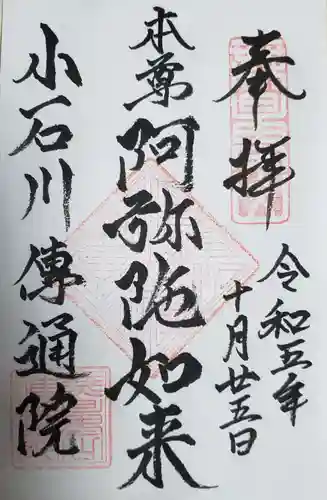 奉拝
令和五年
十月廿五日
本尊
阿弥陀如来
小石川傳通院